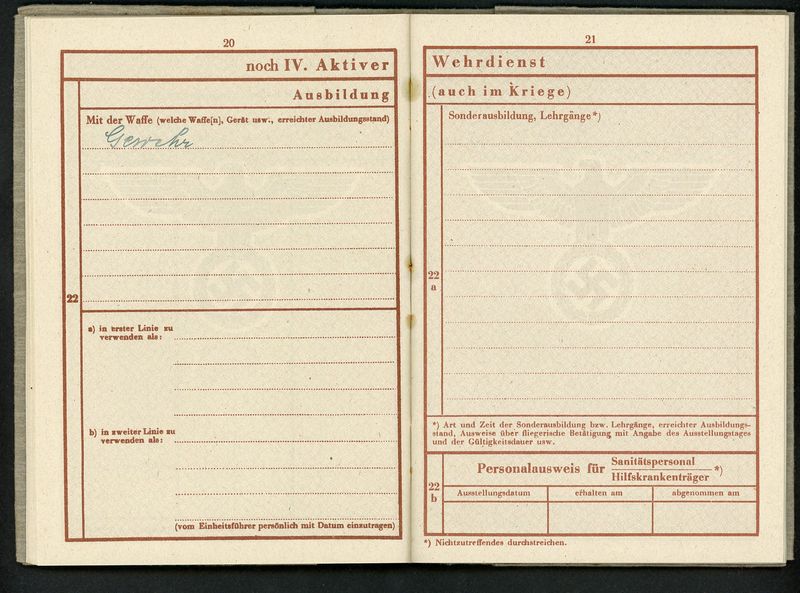 20
noch IV. Aktiver
Ausbildung
Mit der Waffe (welche Waffe[n], Gerät usw., erreichter Ausbildungsstand)
Gewehr
22
a) in erster Linie zu
verwenden als:
b) in zweiter Linie zu
verwenden als:
(vom Einheitsführer persönlich mit Datum einzutragen)
21
Wehrdienst
(auch im Kriege)
Sonderausbildung, Lehrgänge*)
22
a
*) Art und Zeit der Sonderausbildung bzw. Lehrgänge, erreichter Ausbildungs-
stand, Ausweise über fliegerische Betätigung mit Angabe des Ausstellungstages
und der Gültigkeitsdauer usw.
22
b
Personalausweis für Sanitätspersonal *)
Hilfskrankenträger
Ausstellungsdatum erhalten am abgenommen am
*) Nichtzutreffendes durchstreichen.